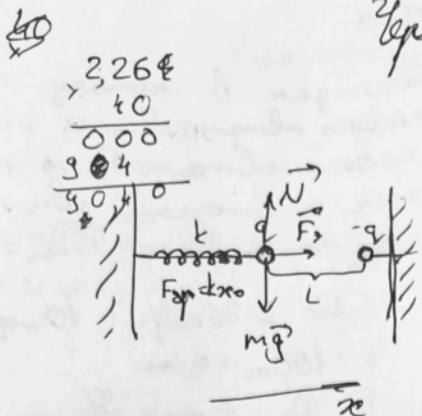 40
2,26
40
000
904
9040
N
k
q
F
-q
Fупр=kx
L
mg
x